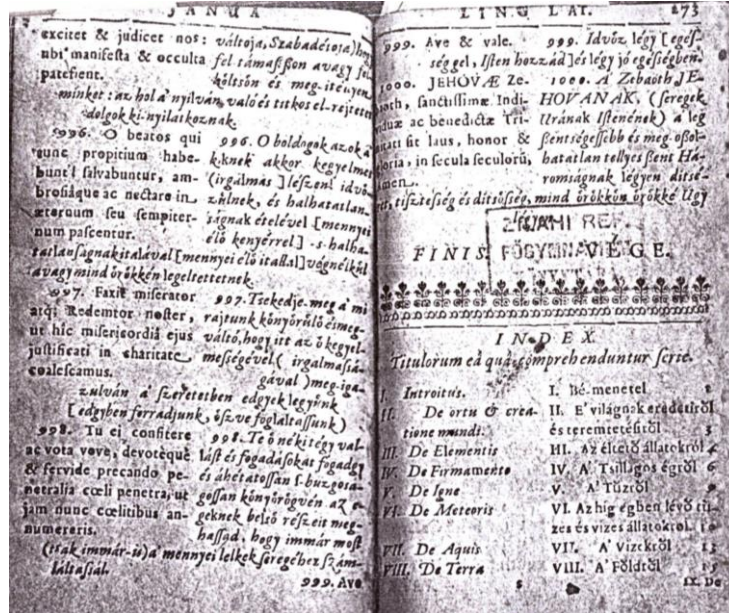 JANUA
excitet & judicet nos:
ubi manifesta & occulta
patefient.
váltója, Szabadésója) hogy
fel támaßßon avagy fel
költsön és meg-itéllyen
minket: az hol a' nyilván való és titkos el-rejtetett
dolgok ki-nyilatkoznak.
996. O beatos qui
tunc propitium habe-
bunt! salvabuntur, am-
brosiaque ac nectare in
æternum seu sempiter-
num pascentur.
996. O boldogok azok a'
kiknek akkor kegyelmes
(irgalmas] léßen! idvö-
zülnek, és halhatatlan-
ságnak ételével [mennyei
élő kenyérrel] -s-halha-
tatlanságnak italával [mennyei élő itallal] végnélkül
avagy mind örökkén legeltettetnek.
997. Faxit miserator
atq; Redemtor noster,
ut hîc misericordiâ ejus
justificati in charitate
coalescamus.
997. Tselekedje-meg a' mi
rajtunk könyörülő és meg-
váltó, hogy itt az ő kegyel-
mességével ( irgalmassá-
gával ) meg-iga-
zulván a' ßeretetben edgyek legyünk
[ edgyben forradjunk, öszve foglaltassunk)
998. Tu ei confitere
ac vota vove, devotèque
& fervide precando pe-
netralia cœli penetra, ut
jam nunc cœlitibus an-
numereris.
998. Te ő néki tégy val-
lást és fogadásokat fogadgy
és áhétatossan s-buzgosá-
gossan könyörögvén az e-
geknek belső réßeit meg-
hassad, hogy immár most
(tsak immár-is) a' mennyei lelkek seregéhez ßám-
láltassál.
999. Ave
LING LAT. 173
999. Ave & vale.
999. Idvöz légy [ egés-
séggel, Isten hozzád ] és légy jó egésségben.
1000. JEHOVÆ Ze-
baoth, sanctissimæ Indi-
viduæ ac benedictæ Tri-
nitati sit laus, honor &
gloria, in secula seculorũ,
Amen.
1000. A' Zebaoth JE-
HOVANAK, (seregek
Urának Istenének) a' leg
ßentségessebb és meg-oßol-
hatatlan tellyes ßent Há-
romságnak légyen ditsé-
ret, tisztesség és ditsősség, mind örökkön örökké Ugy
FINIS. VÉGE.
INDEX
Titulorum eâ quâ comprehenduntur serie.
I. Introitus. I. Bé-menetel 1
II. De ortu & crea-
tione mundi. II. E' világnak eredetiről
és teremtetésiről 3
III. De Elementis III. Az éltető állatokról 4
IV. De Firmamento IV. A' Tsillagos égről 6
V. De Igne V. A' Tűzről
VI. De Meteoris VI. Az hig égben lévő tü-
zes és vizes állatokrol. 10
VII. De Aquis VII. A' Vizekről 13
VIII. De Terra VIII. A' Földről 15
S IX. De